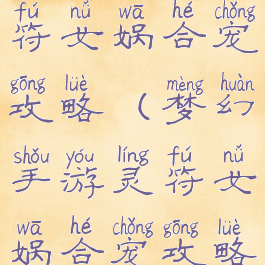 fú nǚ wā hé chǒng
符女娲合宠
gōng lüè mèng huàn
攻略（梦幻
shǒu yóu líng fú nǚ
手游灵符女
wā hé chǒng gōng lüè
娲合宠攻略